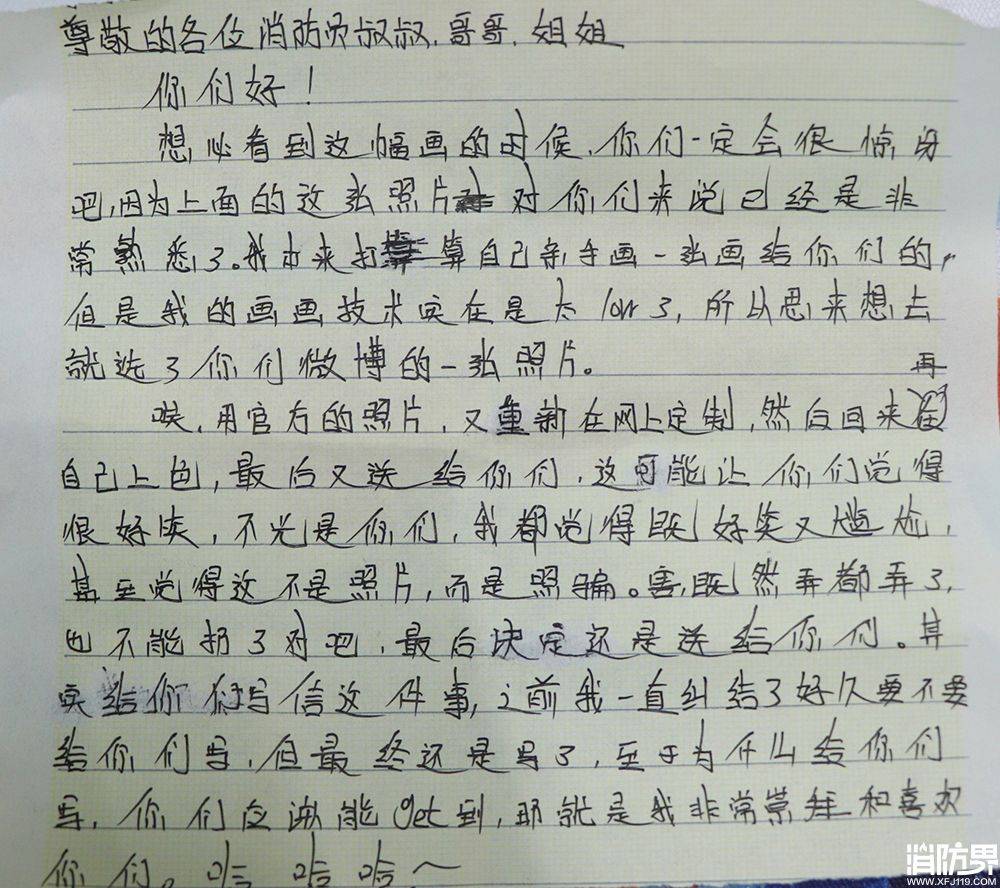 尊敬的各位消防员叔叔.哥哥.姐姐
你们好！
想必看到这幅画的时候,你们一定会很惊讶
吧,因为上面的这张照片对你们来说已经是非
常熟悉了。我本来打算自己亲手画一张画给你们的,
但是我的画画技术实在是太low了,所以思来想去
就选了你们微博的一张照片。
唉,用官方的照片,又重新在网上定制,然后回来再
自己上色,最后又送给你们,这可能让你们觉得
很好笑,不光是你们,我都觉得既好笑又尴尬,
甚至觉得这不是照片,而是照骗。害,既然弄都弄了,
也不能扔了对吧,最后决定还是送给你们。其
实给你们写信这件事,之前我一直纠结了好久要不要
给你们写,但最终还是写了,至于为什么给你们
写,你们应该能get到,那就是我非常崇拜和喜欢
你们。哈哈哈~
消防界
WWW.XFJ119.COM